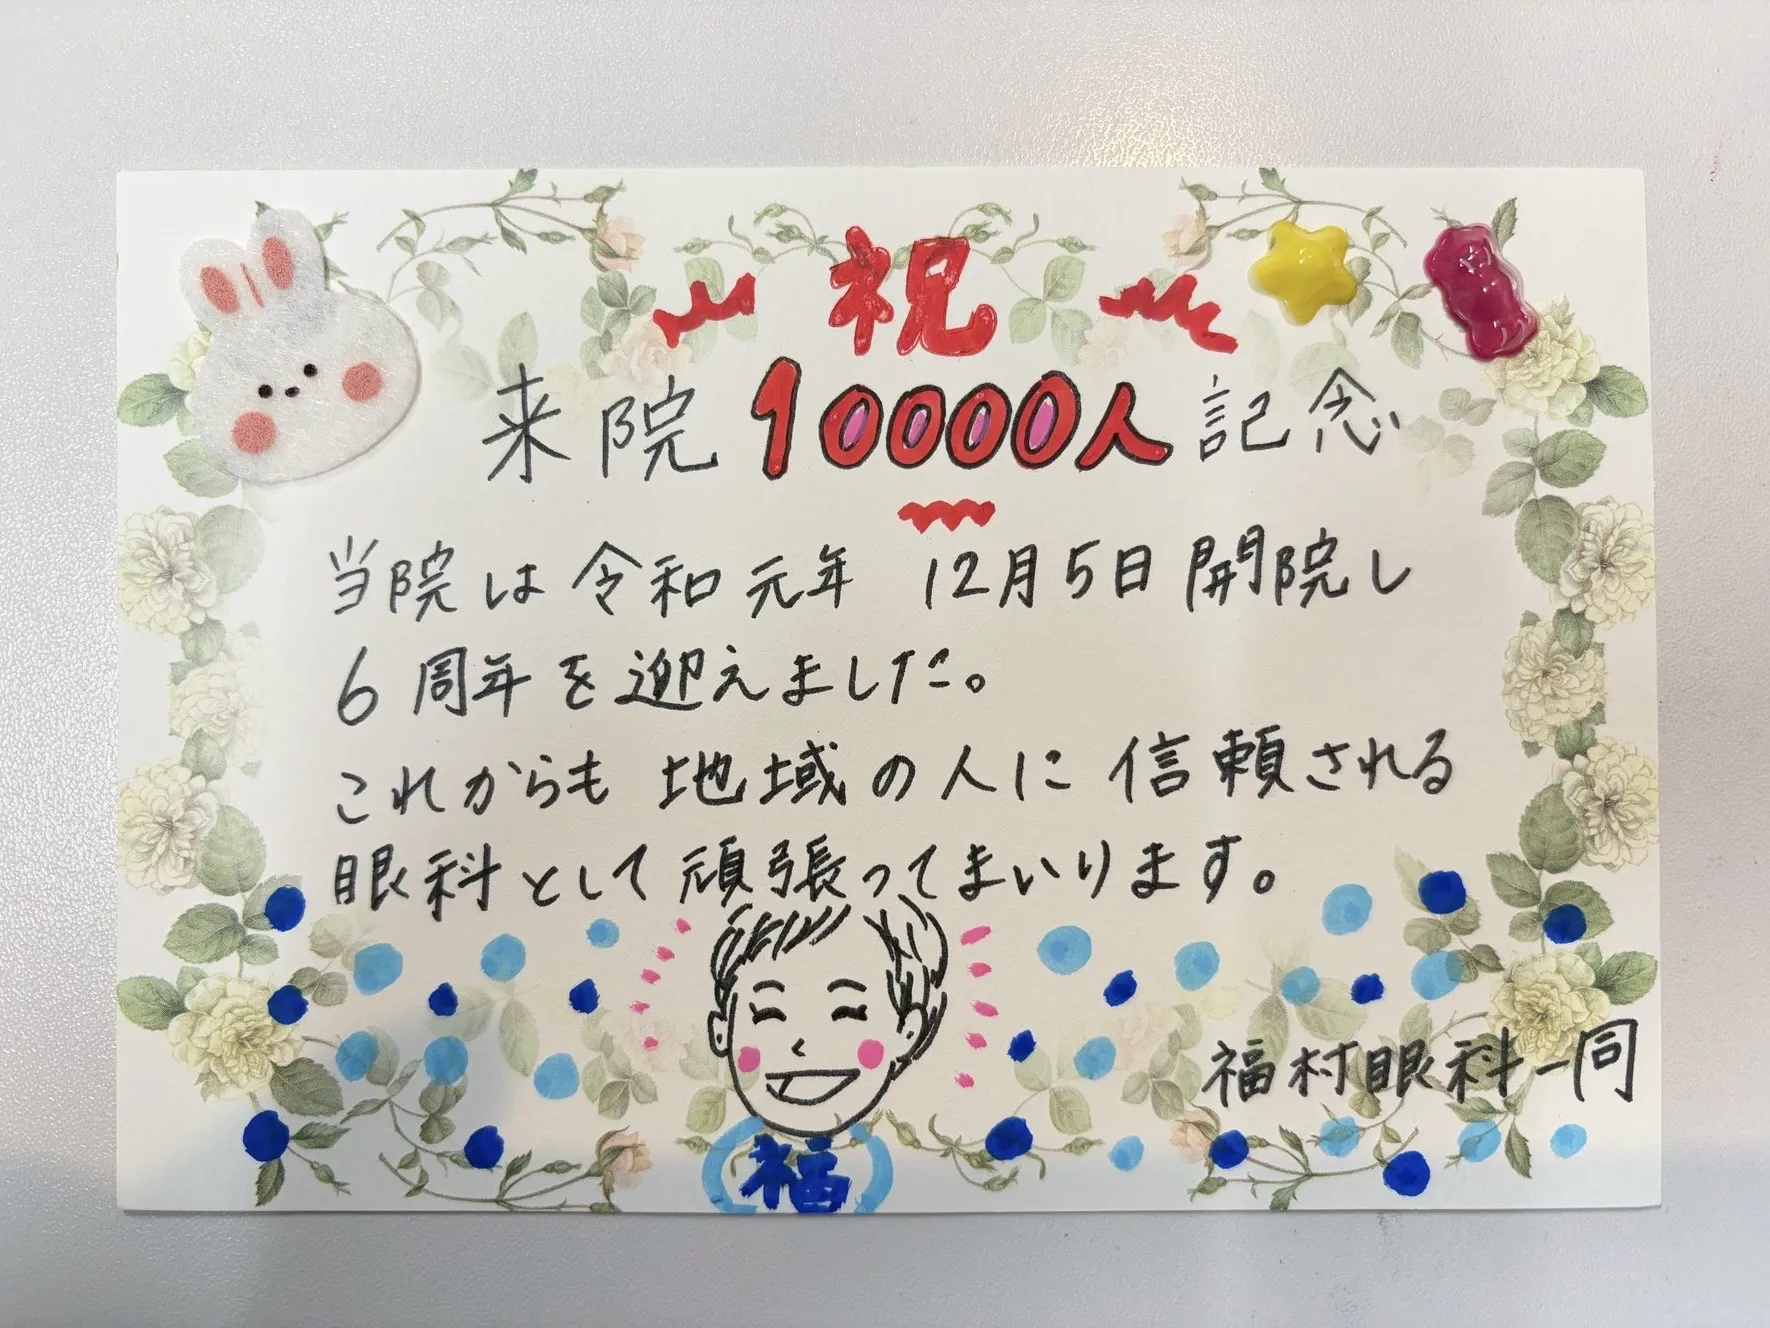 祝
来院10000人記念
当院は令和元年 12月5日開院し
6周年を迎えました。
これからも地域の人に信頼される
眼科として頑張ってまいります。
福村眼科一同
福